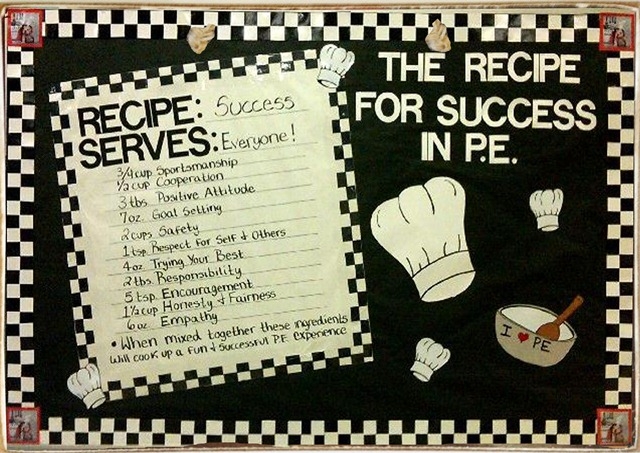 THE RECIPE
FOR SUCCESS
IN P.E.
RECIPE: Success
SERVES: Everyone!
3/4 cup Sportsmanship
1/2 cup Cooperation
3 tbs Positive Attitude
7oz. Goal Setting
2 cups Safety
1 tsp Respect For Self & Others
4 oz Trying Your Best
2 tbs Responsibility
5 tsp. Encouragement
1 1/2 cup Honesty & Fairness
6 oz Empathy
• When mixed together these ingredients
Will cook up a fun & successful P.E. experience
I ♥ PE